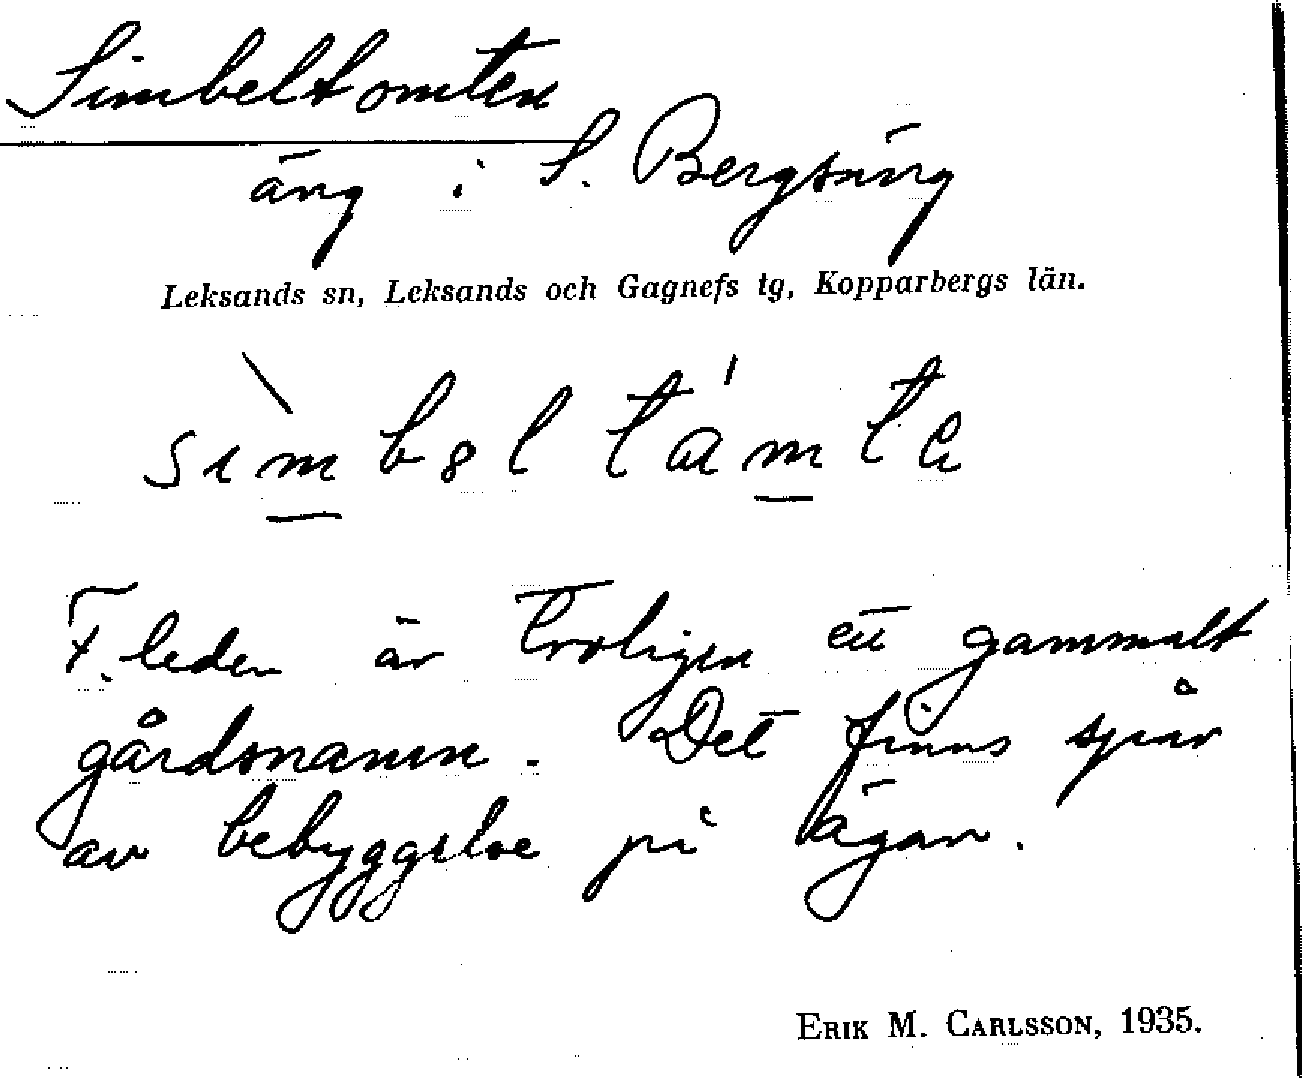 Simbeltomten
äng i S. Bergsäng
Leksands sn, Leksands och Gagnefs tg, Kopparbergs län.
F. leden är troligen ett gammalt
gårdsnamn. Det finns spår
av bebyggelse på ägan.
ERIK M. CARLSSON, 1935.